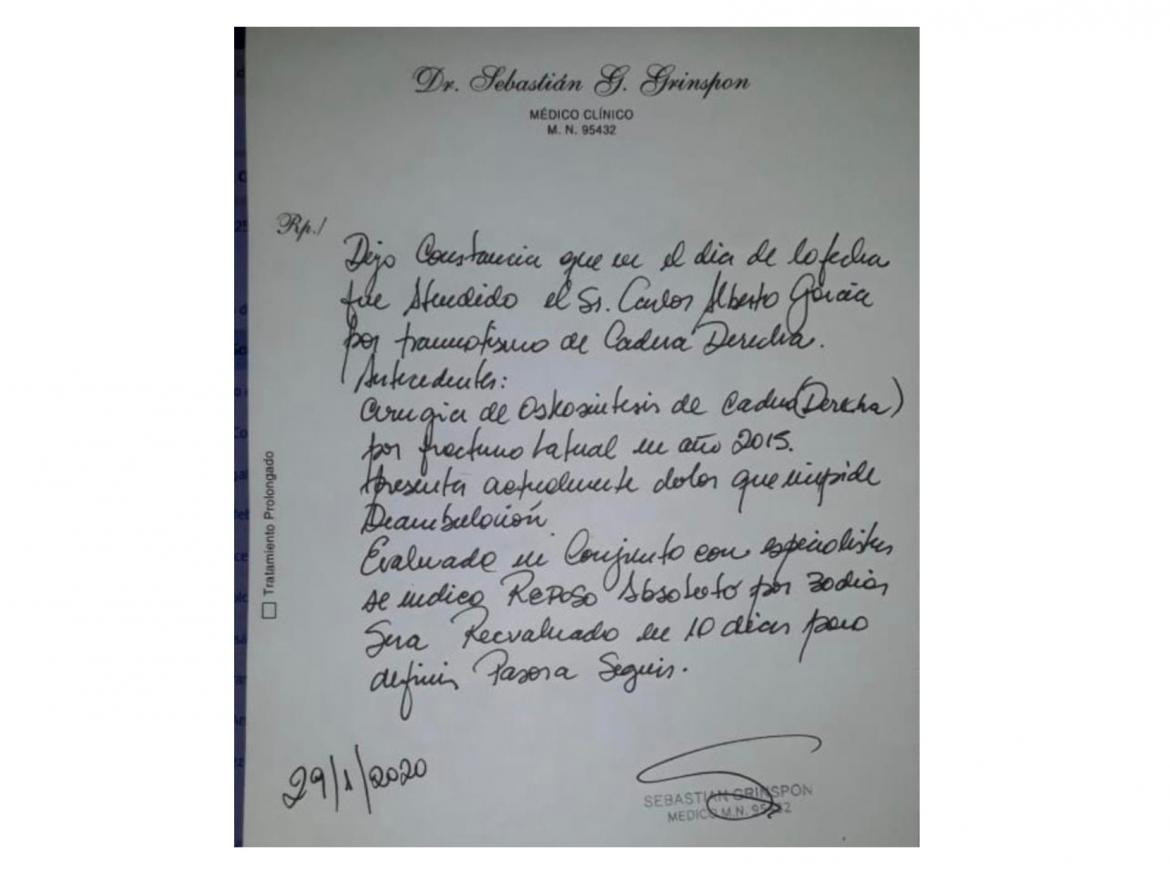 Dr. Sebastián G. Grinspon
MÉDICO CLÍNICO
M. N. 95432
Rp./
Dejo Constancia que en el día de la fecha
fue Atendido el Sr. Carlos Alberto García
por traumatismo de Cadera Derecha.
Antecedentes:
Cirugia de Osteosintesis de Cadera (Derecha)
por fractura lateral en año 2015.
Presenta actualmente dolor que impide
Deambulación
Evaluado en Conjunto con especialistas
se indica REPOSO Absoluto por 30 días
Sera Reevaluado en 10 días para
definir Pasos a Seguir.
Tratamiento Prolongado
29/1/2020
SEBASTIAN GRINSPON
MEDICO M.N. 95432